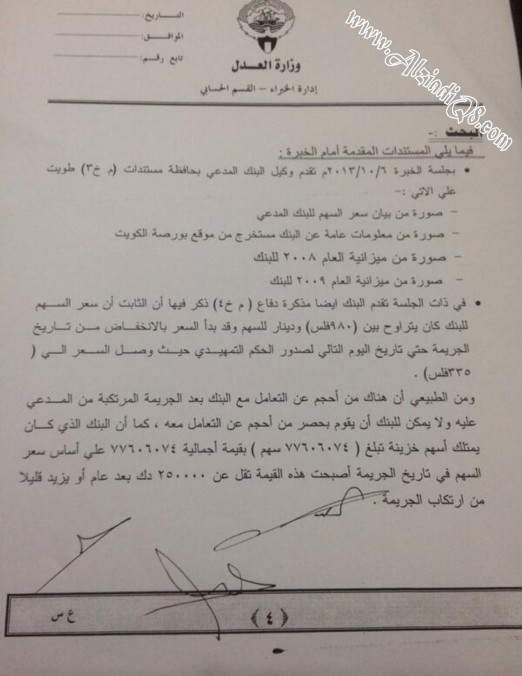 التاريخ:
الموافق:
تابع رقم:
وزارة العدل
إدارة الخبراء - القسم الحسابي
www.AlziadiQ8.com
البحث :-
فيما يلي المستندات المقدمة أمام الخبرة :
• بجلسة الخبرة ٢٠١٣/١٠/٦م تقدم وكيل البنك المدعي بحافظة مستندات (م خ٣) طويت
علي الاتي :-
- صورة من بيان سعر السهم للبنك المدعي
- صورة من معلومات عامة عن البنك مستخرج من موقع بورصة الكويت
- صورة من ميزانية العام ٢٠٠٨ للبنك
- صورة من ميزانية العام ٢٠٠٩ للبنك
• في ذات الجلسة تقدم البنك ايضا مذكرة دفاع (م خ٤) ذكر فيها أن الثابت أن سعر السهم
للبنك كان يتراوح بين (٩٨٠فلس) ودينار للسهم وقد بدأ السعر بالانخفاض من تاريخ
الجريمة حتي تاريخ اليوم التالي لصدور الحكم التمهيدي حيث وصل السعر الي (
٣٣٥فلس) .
ومن الطبيعي أن هناك من أحجم عن التعامل مع البنك بعد الجريمة المرتكبة من المدعي
عليه ولا يمكن للبنك أن يقوم بحصر من أحجم عن التعامل معه ، كما أن البنك الذي كان
يمتلك أسهم خزينة تبلغ ( ٧٧٦٠٦٠٧٤ سهم ) بقيمة أجمالية ٧٧٦٠٦٠٧٤ علي أساس سعر
السهم في تاريخ الجريمة أصبحت هذه القيمة تقل عن ٢٥٠٠٠٠ دك بعد عام أو يزيد قليلا
من ارتكاب الجريمة .
﴿٤﴾
ع ص